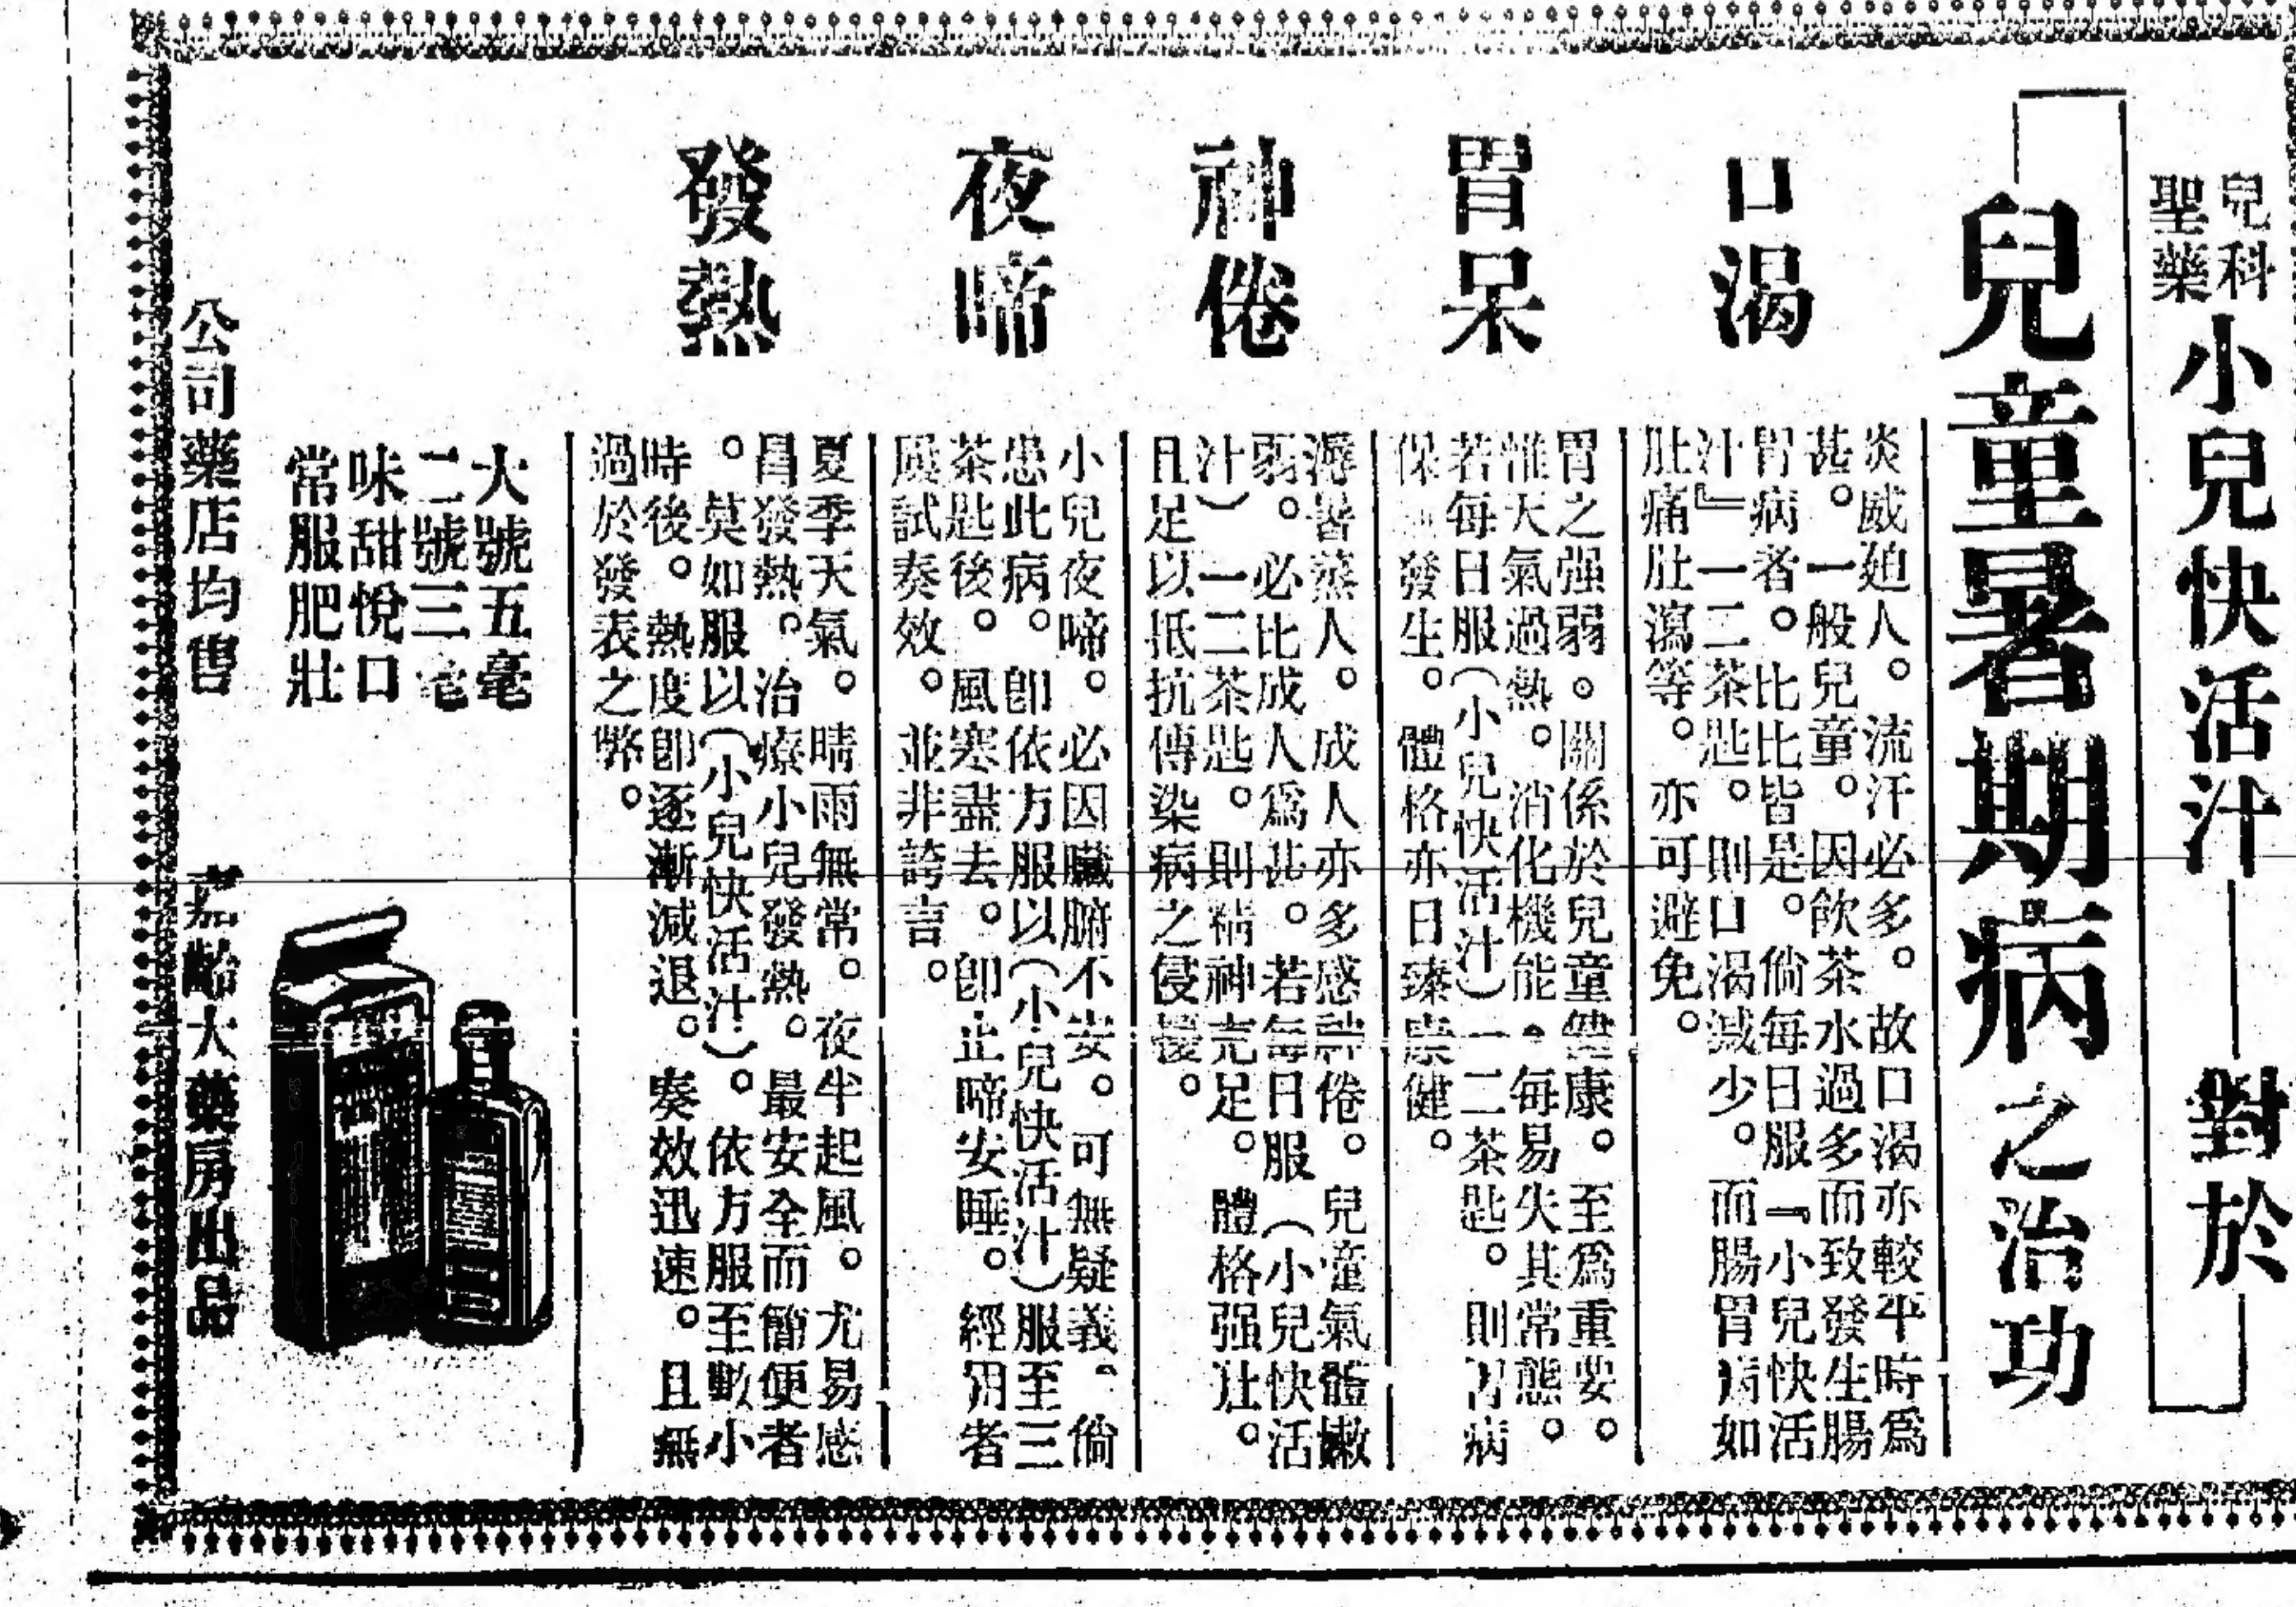 兒科
聖藥
小兒快活汁
對於
兒童暑期病之治功
口渴
炎威廹人。流汗必多。故口渴亦較平時爲
甚。一般兒童。因飲茶水過多而致發生腸
胃病者。比比皆是。倘每日服『小兒快活
汁』一二茶匙。則口渴減少。而腸胃病如
肚痛肚瀉等。亦可避免。
胃呆
胃之强弱。關係於兒童健康。至爲重要。
惟天氣過熱。消化機能。每易失其常態。
若每日服(小兒快活汁)一二茶匙。則胃病
保發生。體格亦日臻康健。
神倦
溽暑蒸人。成人亦多感神倦。兒童氣體嫩
弱。必比成人爲甚。若每日服(小兒快活
汁)一二茶匙。則精神充足。體格强壯。
且足以抵抗傳染病之侵擾。
夜啼
小兒夜啼。必因臟腑不安。可無疑義。倘
患此病。卽依方服以(小兒快活汁)服至三
茶匙後。風寒盡去。卽止啼安睡。經用者
屢試奏效。並非誇言。
發熱
夏季天氣。晴雨無常。夜半起風。尤易感
冒發熱。治療小兒發熱。最安全而簡便者
。莫如服以(小兒快活汁)。依方服至數小
時後。熱度卽逐漸減退。奏效迅速。且無
過於發表之弊。
大號五毫
二號三毫
味甜悅口
常服肥壯
公司藥店均售
嘉齡大藥房出品